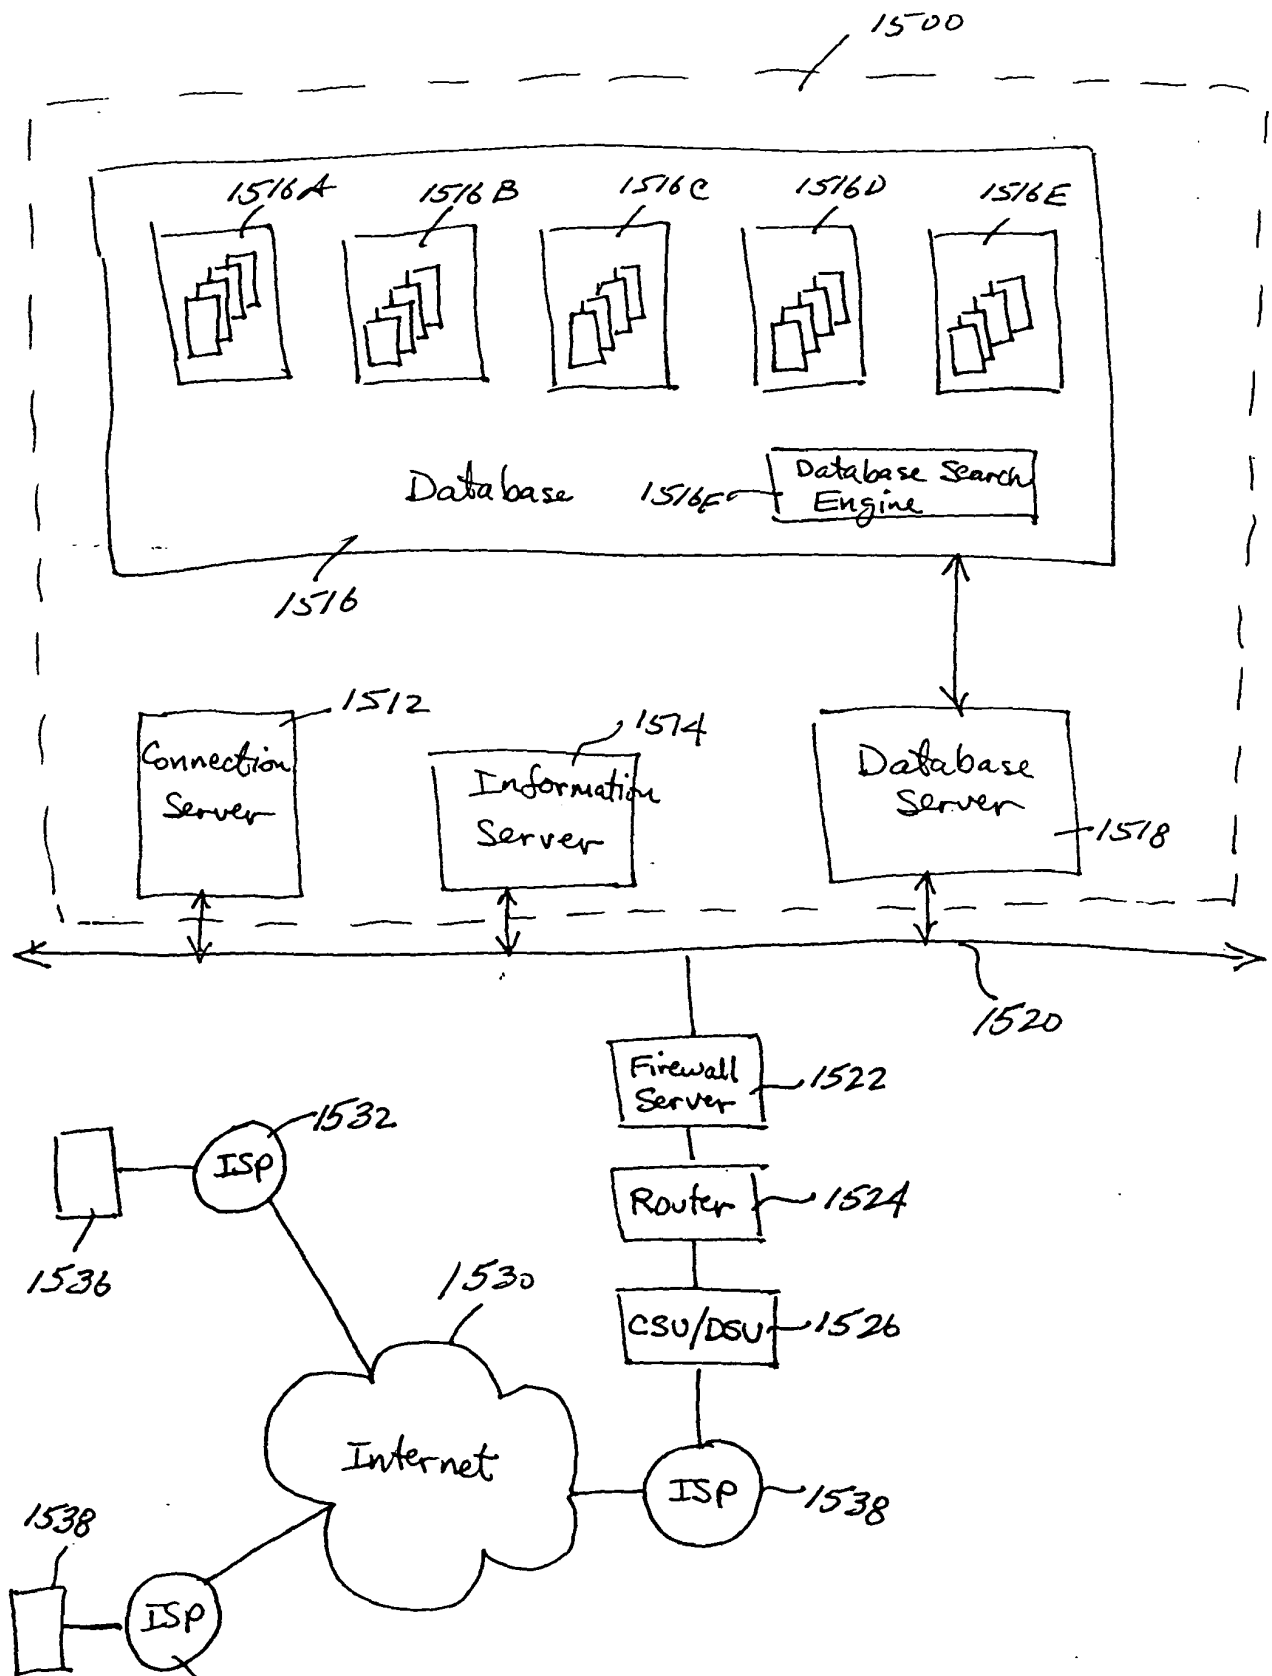 1500
1516A
1516B
1516C
1516D
1516E
Database
1516F
Database Search
Engine
1516
1512
Connection
Server
1514
Information
Server
Database
Server
1518
1520
Firewall
Server
1522
1532
ISP
Router
1524
1536
1530
CSU/DSU
1526
Internet
ISP
1538
1538
ISP